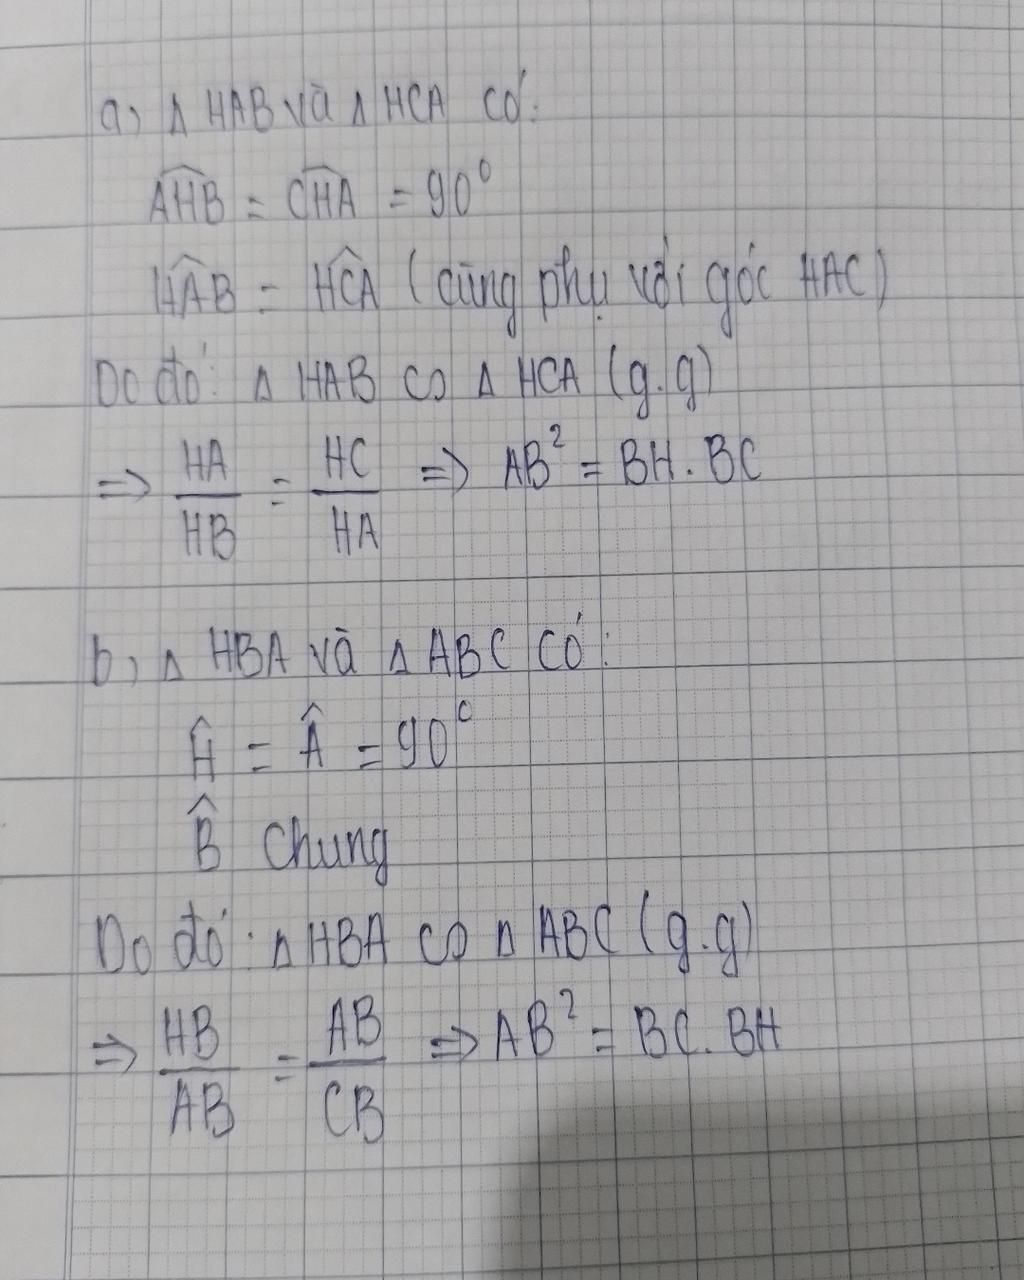 a, Δ HAB và Δ HCA có:
$\widehat{AHB}$ = $\widehat{CHA}$ = 90°
$\widehat{HAB}$ = $\widehat{HCA}$ (cùng phụ với góc HAC)
Do đó: Δ HAB ∽ Δ HCA (g.g)
=> $\frac{HA}{HB}$ = $\frac{HC}{HA}$ => AB² = BH. BC
b, Δ HBA và Δ ABC có:
$\widehat{H}$ = $\widehat{A}$ = 90°
$\widehat{B}$ chung
Do đó: Δ HBA ∽ Δ ABC (g.g)
=> $\frac{HB}{AB}$ = $\frac{AB}{CB}$ => AB² = BC. BH